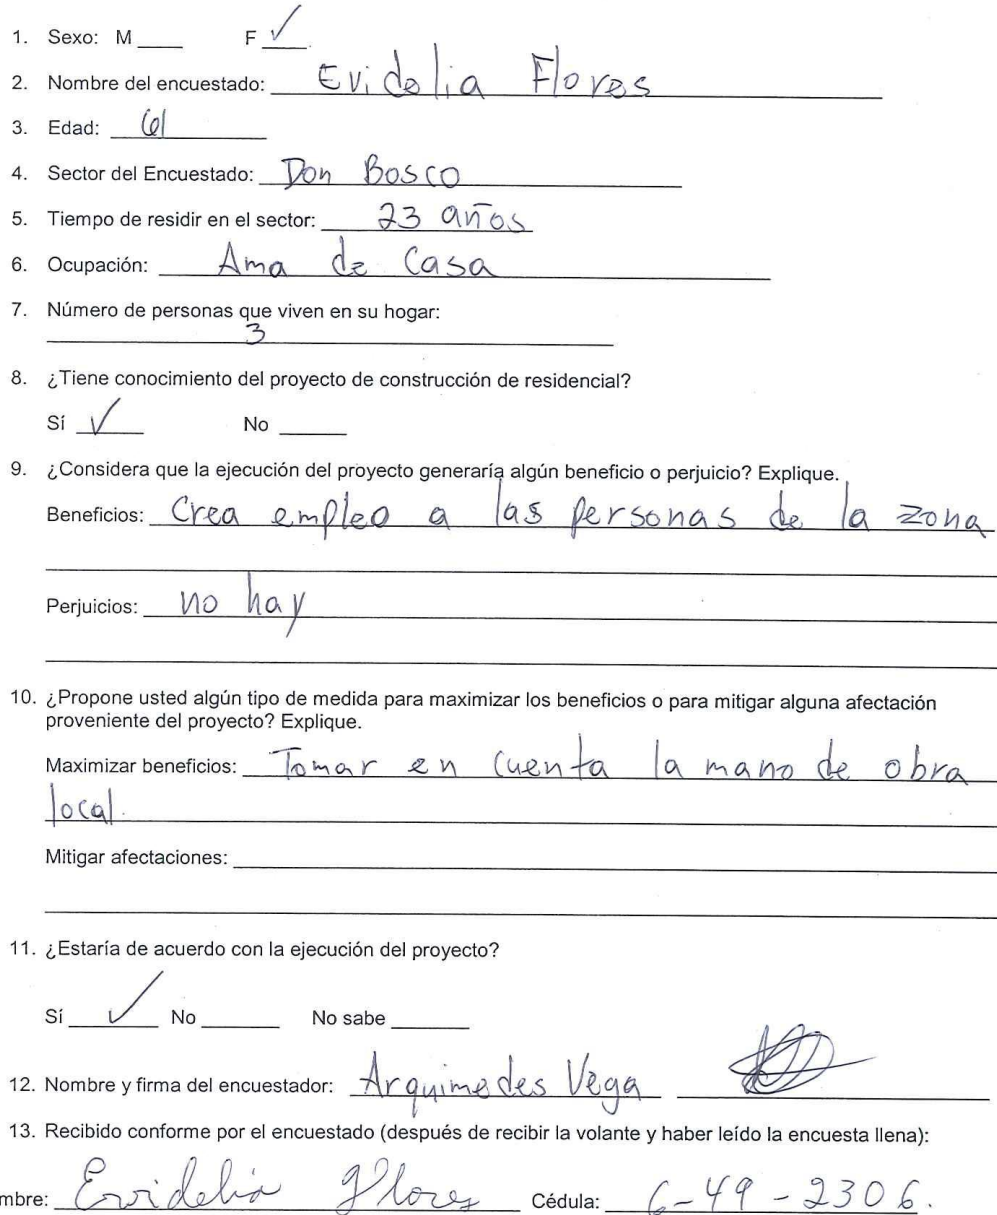 1. Sexo: M ____ F ✓
2. Nombre del encuestado: Evidelia Flores
3. Edad: 61
4. Sector del Encuestado: Don Bosco
5. Tiempo de residir en el sector: 23 años
6. Ocupación: Ama de Casa
7. Número de personas que viven en su hogar:
3
8. ¿Tiene conocimiento del proyecto de construcción de residencial?
Sí ✓ No ____
9. ¿Considera que la ejecución del proyecto generaría algún beneficio o perjuicio? Explique.
Beneficios: Crea empleo a las personas de la zona
Perjuicios: no hay
10. ¿Propone usted algún tipo de medida para maximizar los beneficios o para mitigar alguna afectación
proveniente del proyecto? Explique.
Maximizar beneficios: Tomar en cuenta la mano de obra
local.
Mitigar afectaciones:
11. ¿Estaría de acuerdo con la ejecución del proyecto?
Sí ✓ No ____ No sabe ____
12. Nombre y firma del encuestador: Arquimedes Vega
13. Recibido conforme por el encuestado (después de recibir la volante y haber leído la encuesta llena):
mbre: Evidelia Flores Cédula: 6-49-2306.